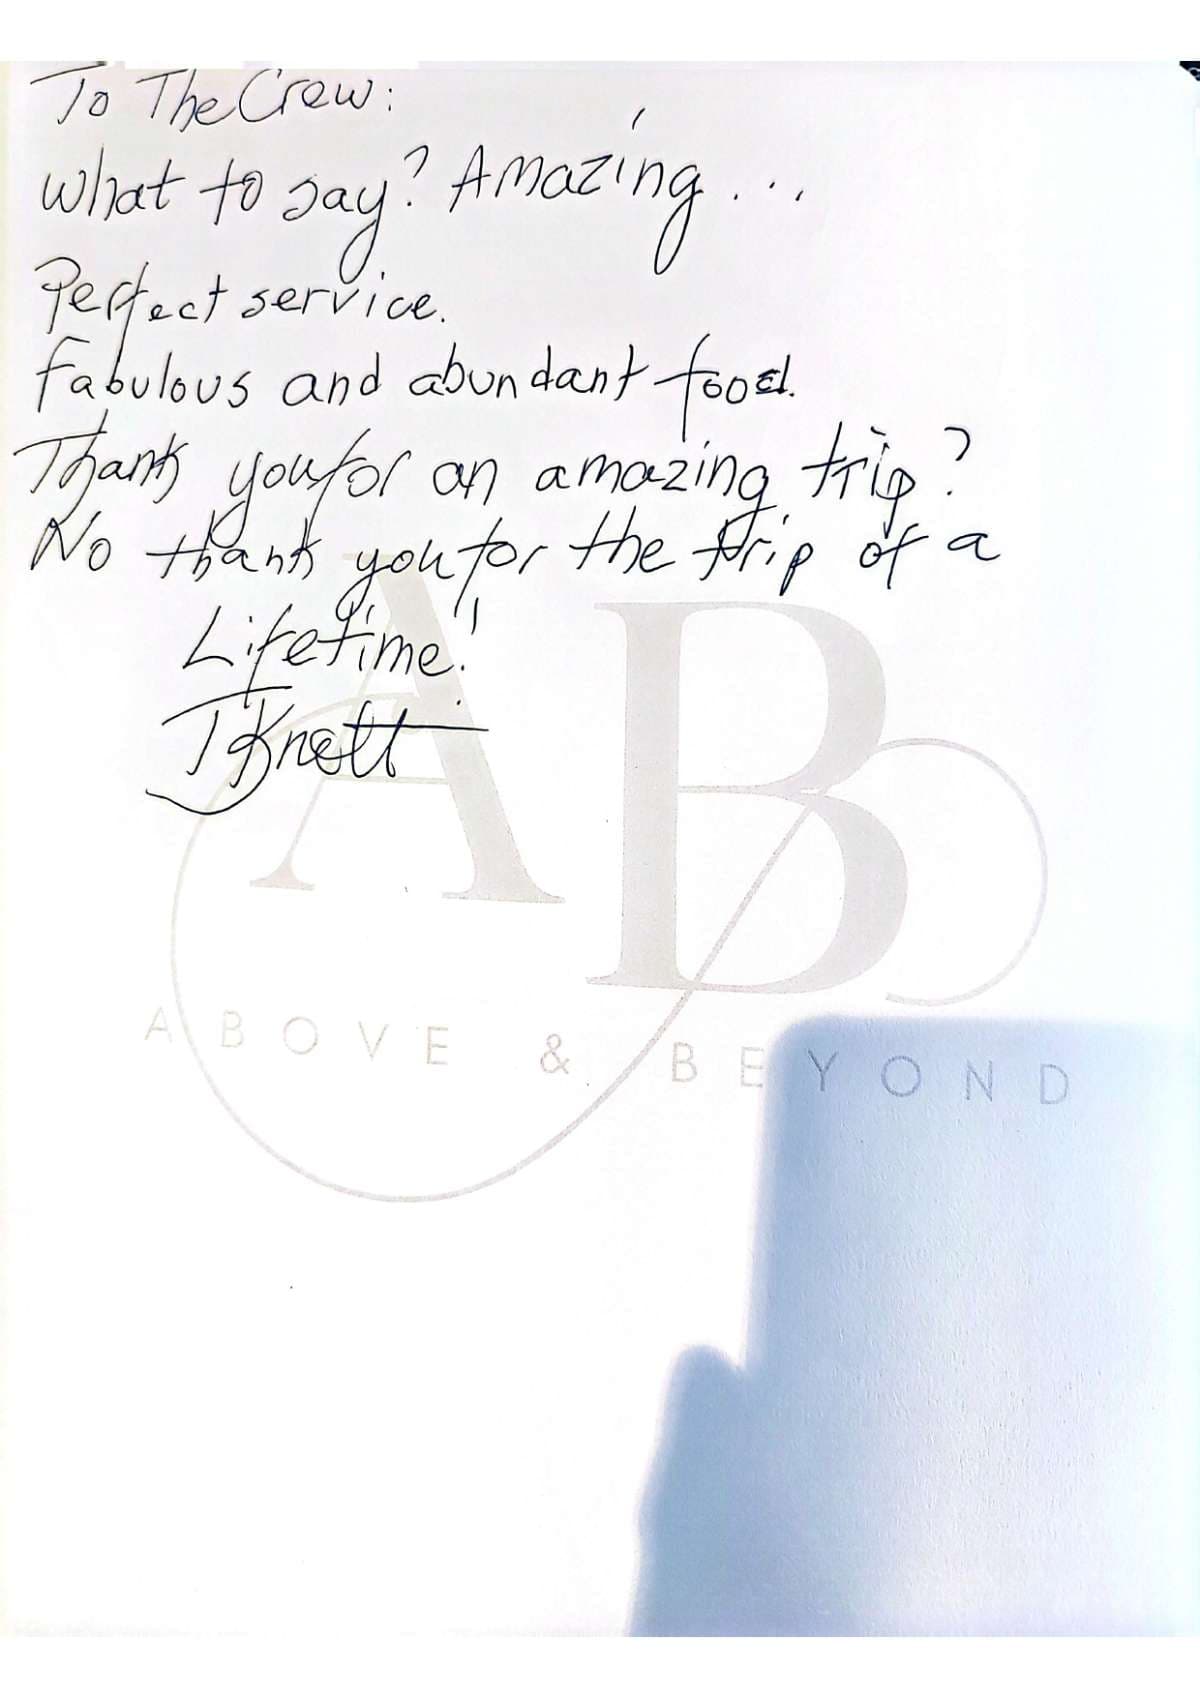 To The Crew:
What to say? Amazing...
Perfect service.
Fabulous and abundant food.
Thank you for an amazing trip?
No thank you for the trip of a
Lifetime!!
AB
ABOVE & BEYOND